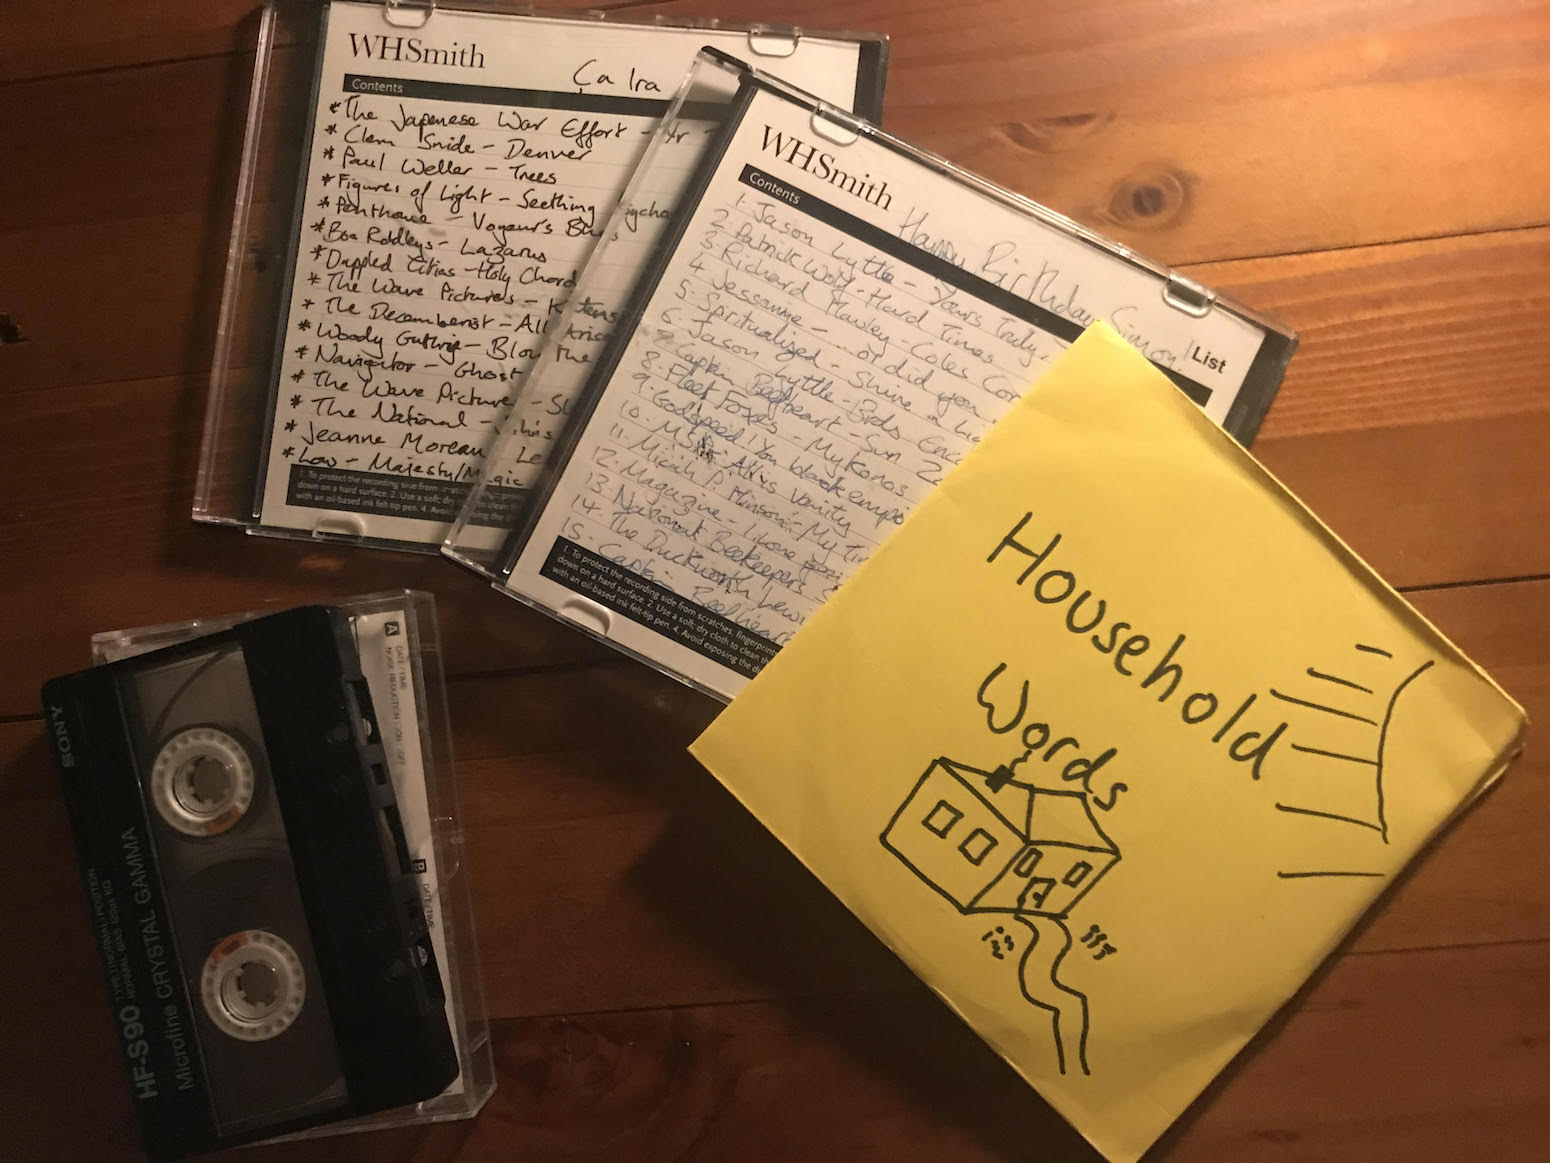 WHSmith
Ça Ira
Contents
*The Japanese War Effort -
*Clem Snide - Denver
*Paul Weller - Trees
*Figures of Light - Seething
*Penthouse - Voyeur's
*Boe Roddeys - Lazarus
*Dappled Cities - Holy Chord
*The Wave Pictures -
*The Decemberist - All Arise
*Woody Guthrie - Blow the
*Navigator - Ghost
*The Wave Pictures -
*The National -
*Jeanne Moreau - Le
*Low - Majesty/Magic
1. To protect the recording side from
down on a hard surface. 2. Use a soft, dry
with an oil-based ink felt-tip pen. 4. Avoid
WHSmith
Happy Birthday Simon!
Contents
List
1. Jason Lyttle - Yours Truly,
2. Patrick Wolf - Hard Times
3. Richard Hawley - Coles Cor
4. Jessamine - ... or did you
5. Spiritualized - Shine a Lig
6. Jason Lyttle - Birds Enc
7. Captain Beefheart - Sun Z
8. Fleet Foxes - Mykonos
9. Godspeed! You black empe
10. Allis Vanity
11. Micah P Hinson - My Tim
12. Magazine - I love you
13. National Beekeepers S
14. The Duckworth Lewis
15. Captain Beefheart
1. To protect the recording side from scratches, fingerprint
down on a hard surface. 2. Use a soft, dry cloth to clean th
with an oil-based ink felt-tip pen. 4. Avoid exposing the d
Household
Words
SONY
TYPE I (NORMAL) POSITION
NORMAL BIAS 120μs EQ
HF-S90
Microfine CRYSTAL GAMMA
A
DATE/TIME
NOISE REDUCTION
B
DATE/TIME